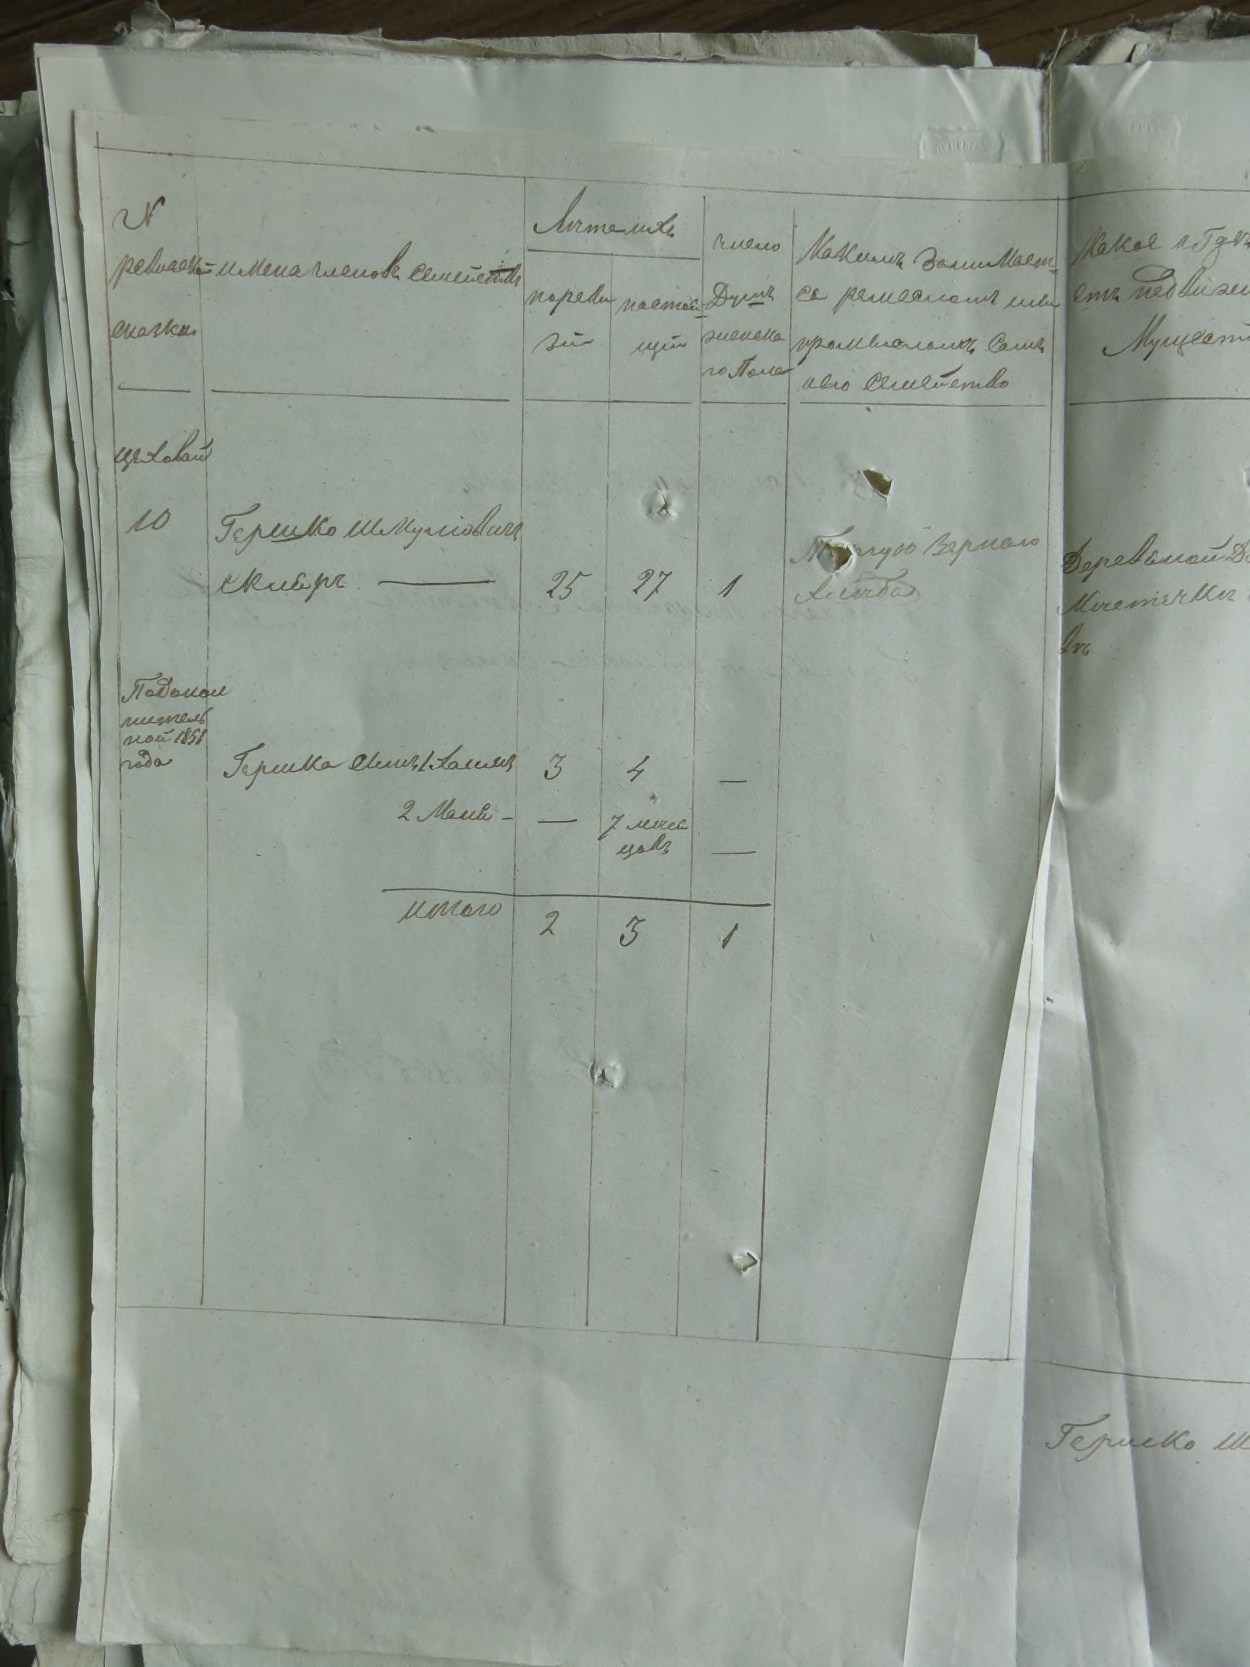 N
ревизской
сказки
имена членовъ семействъ
Лета ихъ
по реви
зіи
настоя-
щіи
число
Душъ
женска
го Пола
Какимъ Занимает-
ся ремесломъ или
промысломъ Самъ
и его Семейство
Какое и Гдѣ
етъ недвижи
Мущест
цѣховай
10
Гершко Шмуліовичъ
Скляръ — 25 27 1
Торгую Зерномъ
Деревяной До
Мѣстечкѣ
Подопол
нительной
ной 1851
года
Гершка Сынъ 1 Хаимъ 3 4 —
2 — — 7 мѣся
цовъ —
итого 2 3 1
Гершко Ш